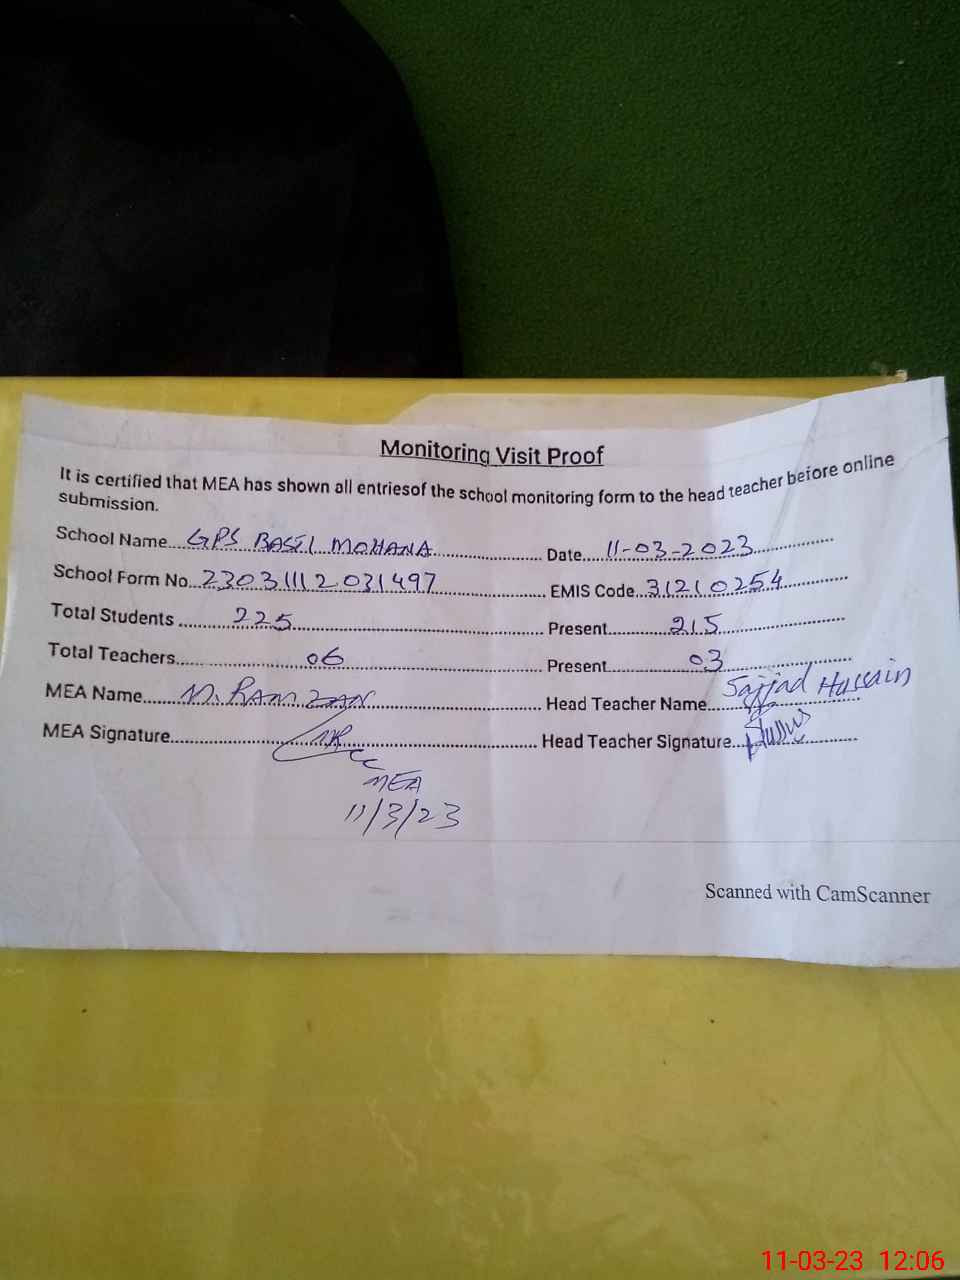 Monitoring Visit Proof
It is certified that MEA has shown all entriesof the school monitoring form to the head teacher before online
submission.
School Name GPS BASTI MOHANA Date 11-03-2023
School Form No. 23031112031497 EMIS Code 31210254
Total Students 225 Present 215
Total Teachers 06 Present 03
MEA Name M. RAMZAN Head Teacher Name Sajjad Hussain
MEA Signature Head Teacher Signature
MEA
11/3/23
Scanned with CamScanner
11-03-23 12:06